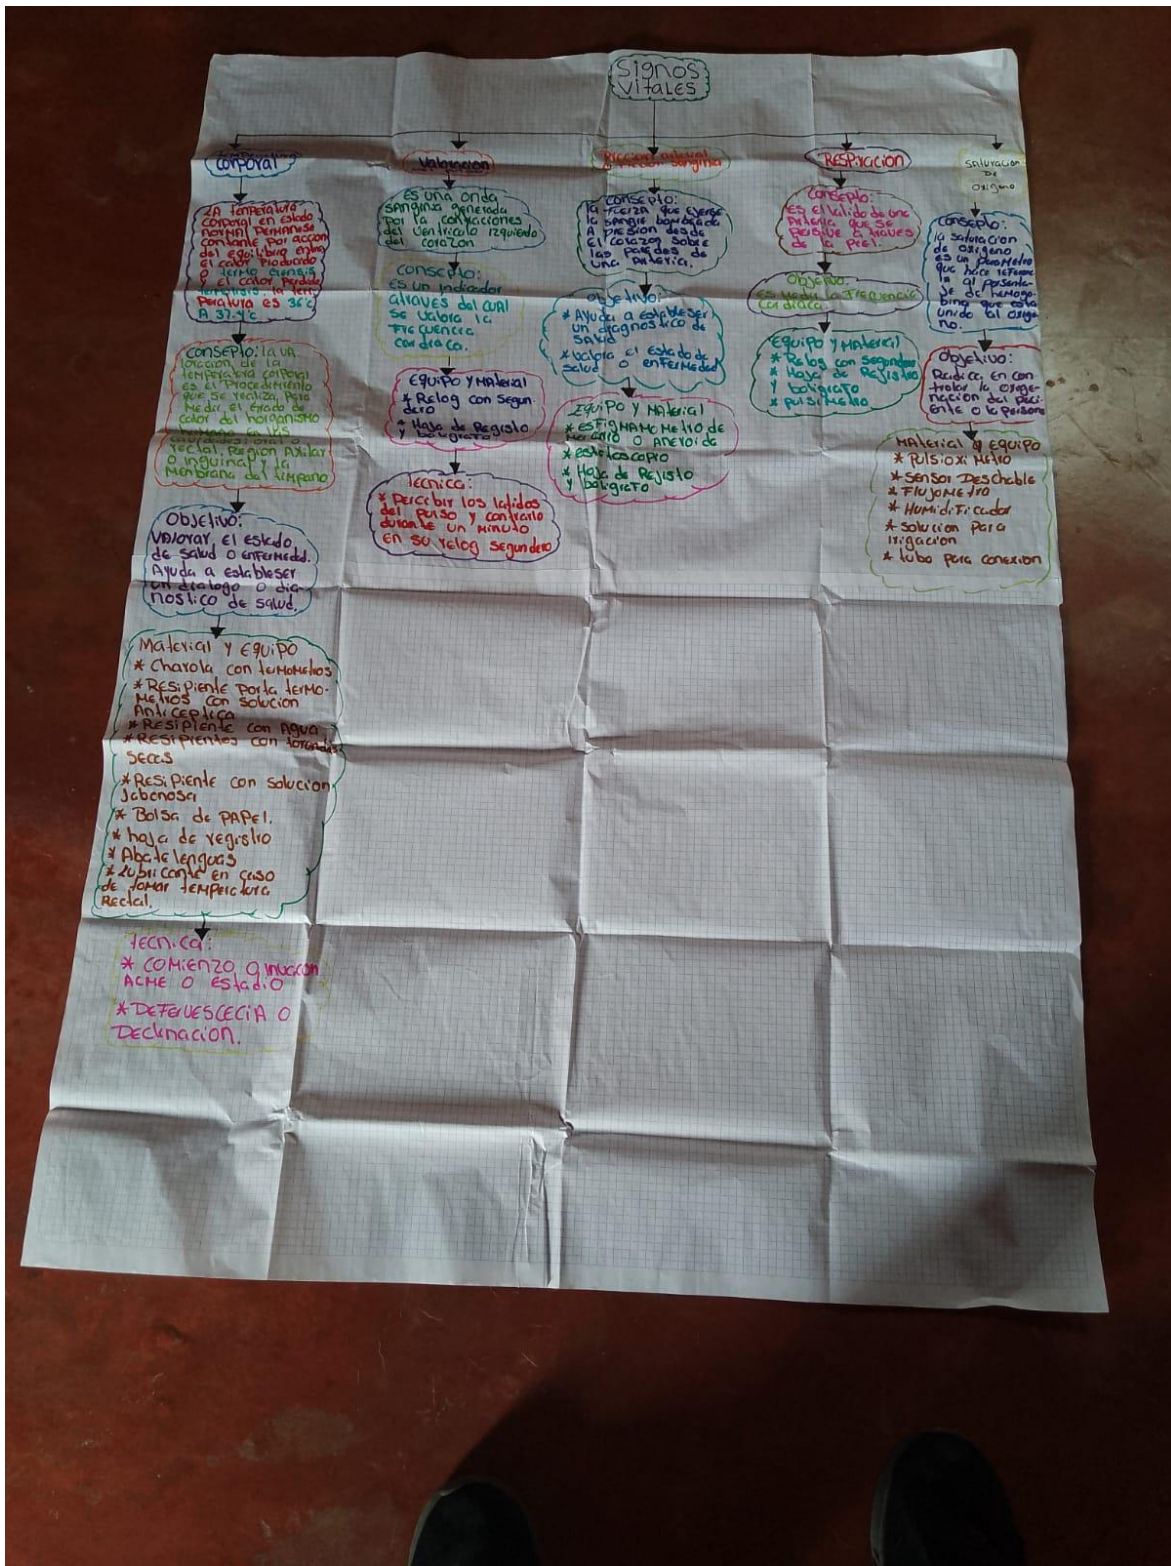 Signos
Vitales
Corporal
LA temperatura
corporal en estado
normal Permanese
constante por accion
del equilibrio entre
el calor Producido
o termo genesis
y el calor perdido
la tem
peratura es 36°c
A 37.4°c
consepto: la va
loracion de la
temperatura corporal
es el Procedimiento
que se realiza, Para
Medir el grado de
calor del
rectal, Region Axilar
o inguinal y la
Membrana del timpano
Objetivo:
VAlorar, el estado
de salud o enfermedad.
Ayuda a estableser
un dialogo o dia-
nostico de salud.
Material y EQUIPO
* Charola con termometros
* Resipiente porta termo-
metros con solucion
Anticeptica
* Resipiente con Agua
* Resipientes con torundas
Secas
* Resipiente con solucion
Jabonosa
* Bolsa de PAPEl.
* hoja de registro
* Abatelenguas
* Lubricante en caso
de tomar temperatura
Rectal.
tecnica:
* COMIENZO o
ACME O Estadio
* DEFERVESCECIA O
Declinacion.
Valoracion
Es una onda
sangina generada
Por la contraciones
del Ventriculo izquierdo
del corazon
consepto:
es un indicador
atraves del cual
se valora la
Frecuencia
cardiaca.
EQUIPO Y MAterial
* Relog con segun
dero
* Hoja de Registo
y boligrafo
tecnica:
* percebir los latidos
del pulso y contrarlo
durante un Minuto
en su relog segundero
consepto:
la fuerza que ejerse
la sangre bombeada
A presion desde
El corazon sobre
las paredes de
una Arteria.
Objetivo:
* Ayuda a estableser
un diagnostico de
salud
* valora el estado de
salud o enfermedad
EQUIPO Y MAterial
* esfigmamometro de
Mercurio o Aneroide
* estetoscopio
* Hoja de Rejisto
y boligrafo
RESPiracion
consepto:
es el latido de una
Arteria que se
persive a traves
de la Piel.
Objetivo:
es Medir la Frecuencia
cardiaca
EQUIPO Y MAterial
* Relog con segundero
* Hoja de Rejistro
y boligrafo
* pulsimetro
SAturacion
De
Oxigeno
consepto:
la saturacion
de oxigeno
es un parametro
que hace referen
ia al porsenta-
je de hemoglo-
bina que esta
unido al oxige
no.
Objetivo:
Radica en con
trolar la oxige-
nacion del paci-
ente o la persona
MAterial y EQUIPO
* Pulsioxi Metro
* sensor Deschable
* FlujoMetro
* HUMidificador
* solucion Para
irigacion
* tubo para conexion